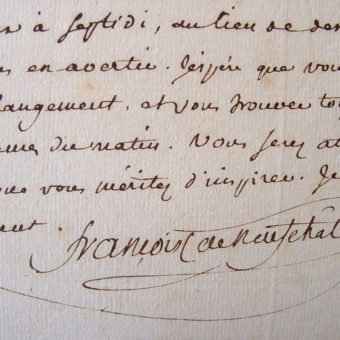 à Septidi, au lieu de de
en avertir. J'espère que vou
angement, et vous trouver to
du matin. Vous serez at
vous méritez d'inspirer. Je
ent.
françois de neufchat